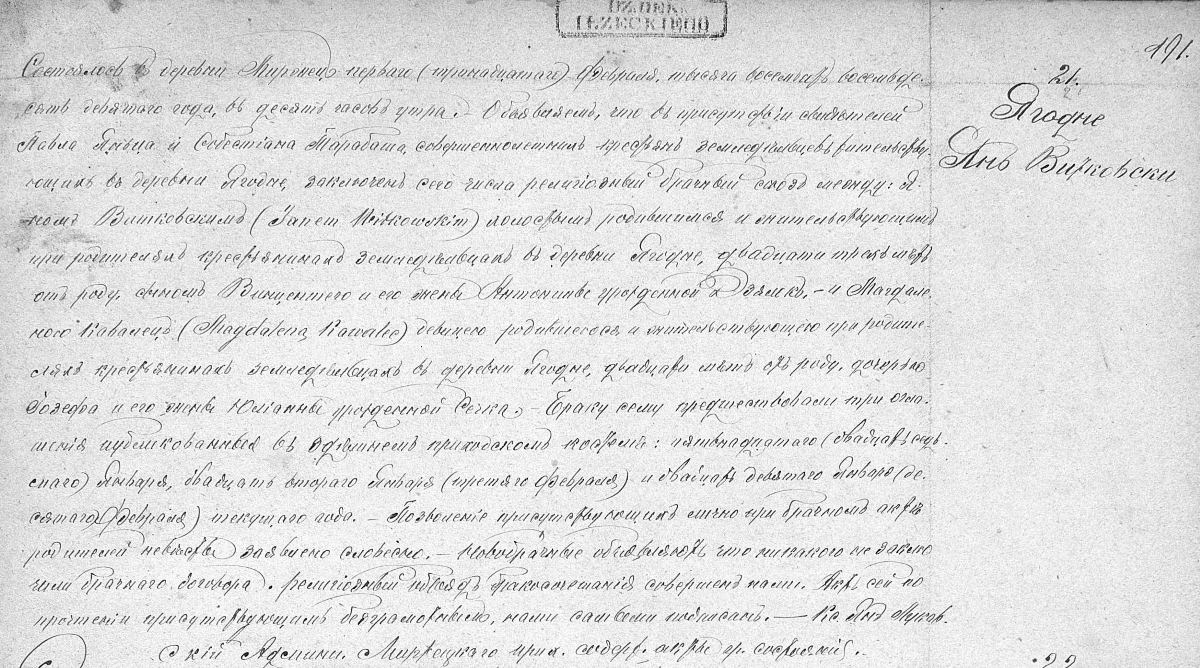 DZ.DEK.
ŁZECKIEGO
191.
21.
Ягодне
Янъ Витковски
Состоялось въ деревни Миренецъ перваго (тринадцатаго) Февраля, тысяча восемьсотъ восемьде-
сятъ девятого года, въ десять часовъ утра. – Объявляемъ, что въ присутствіи свидѣтелей
Павла и Собестіана Тарабаша, совершеннолетнихъ крестьян земледѣльцевъ жительству-
ющихъ въ деревни Ягодне, заключенъ сего числа религіозный брачный союзъ между: Я-
номъ Витковскимъ (Janem Witkowskim) холостымъ родившимся и жительствующимъ
при родителяхъ крестьянинахъ земледѣльцахъ въ деревни Ягодне, двадцати трехъ лѣтъ
отъ роду, сыномъ Винцентего и его жены Антонины урожденной Дзямкъ, – и Магдале-
ного Кавалецъ (Magdaleną Kawalec) девицею родившегося и жительствующего при родите-
ляхъ крестьянинахъ земледѣльцахъ въ деревни Ягодне, двадцати лѣтъ отъ роду, дочерью
Іозефа и его жены Юлianны урожденной Сечка. – Браку сему предшествовали три огла-
шенія публикованныя въ здѣшнемъ приходскомъ костелѣ: пятьнадцатаго (двадцать седь-
маго) Января, двадцать втораго Января (третяго Февраля) и двадцать девятаго Января (де-
сятаго Февраля) текущаго года. – Позволеніе присутствующихъ лично при брачномъ актѣ
родителей невѣсты заявлено словесно. – Новобрачные объявляютъ что никакого не заклю-
чили брачнаго договора. Религіозный обрядъ бракосочетанія совершенъ нами. Актъ сей по
прочтении присутствующимъ безграмотнымъ, нами самыми подписанъ. — Кс. Янъ
скій Админи. Миржецкаго прих. содерж. акты гр. состоянія.
22